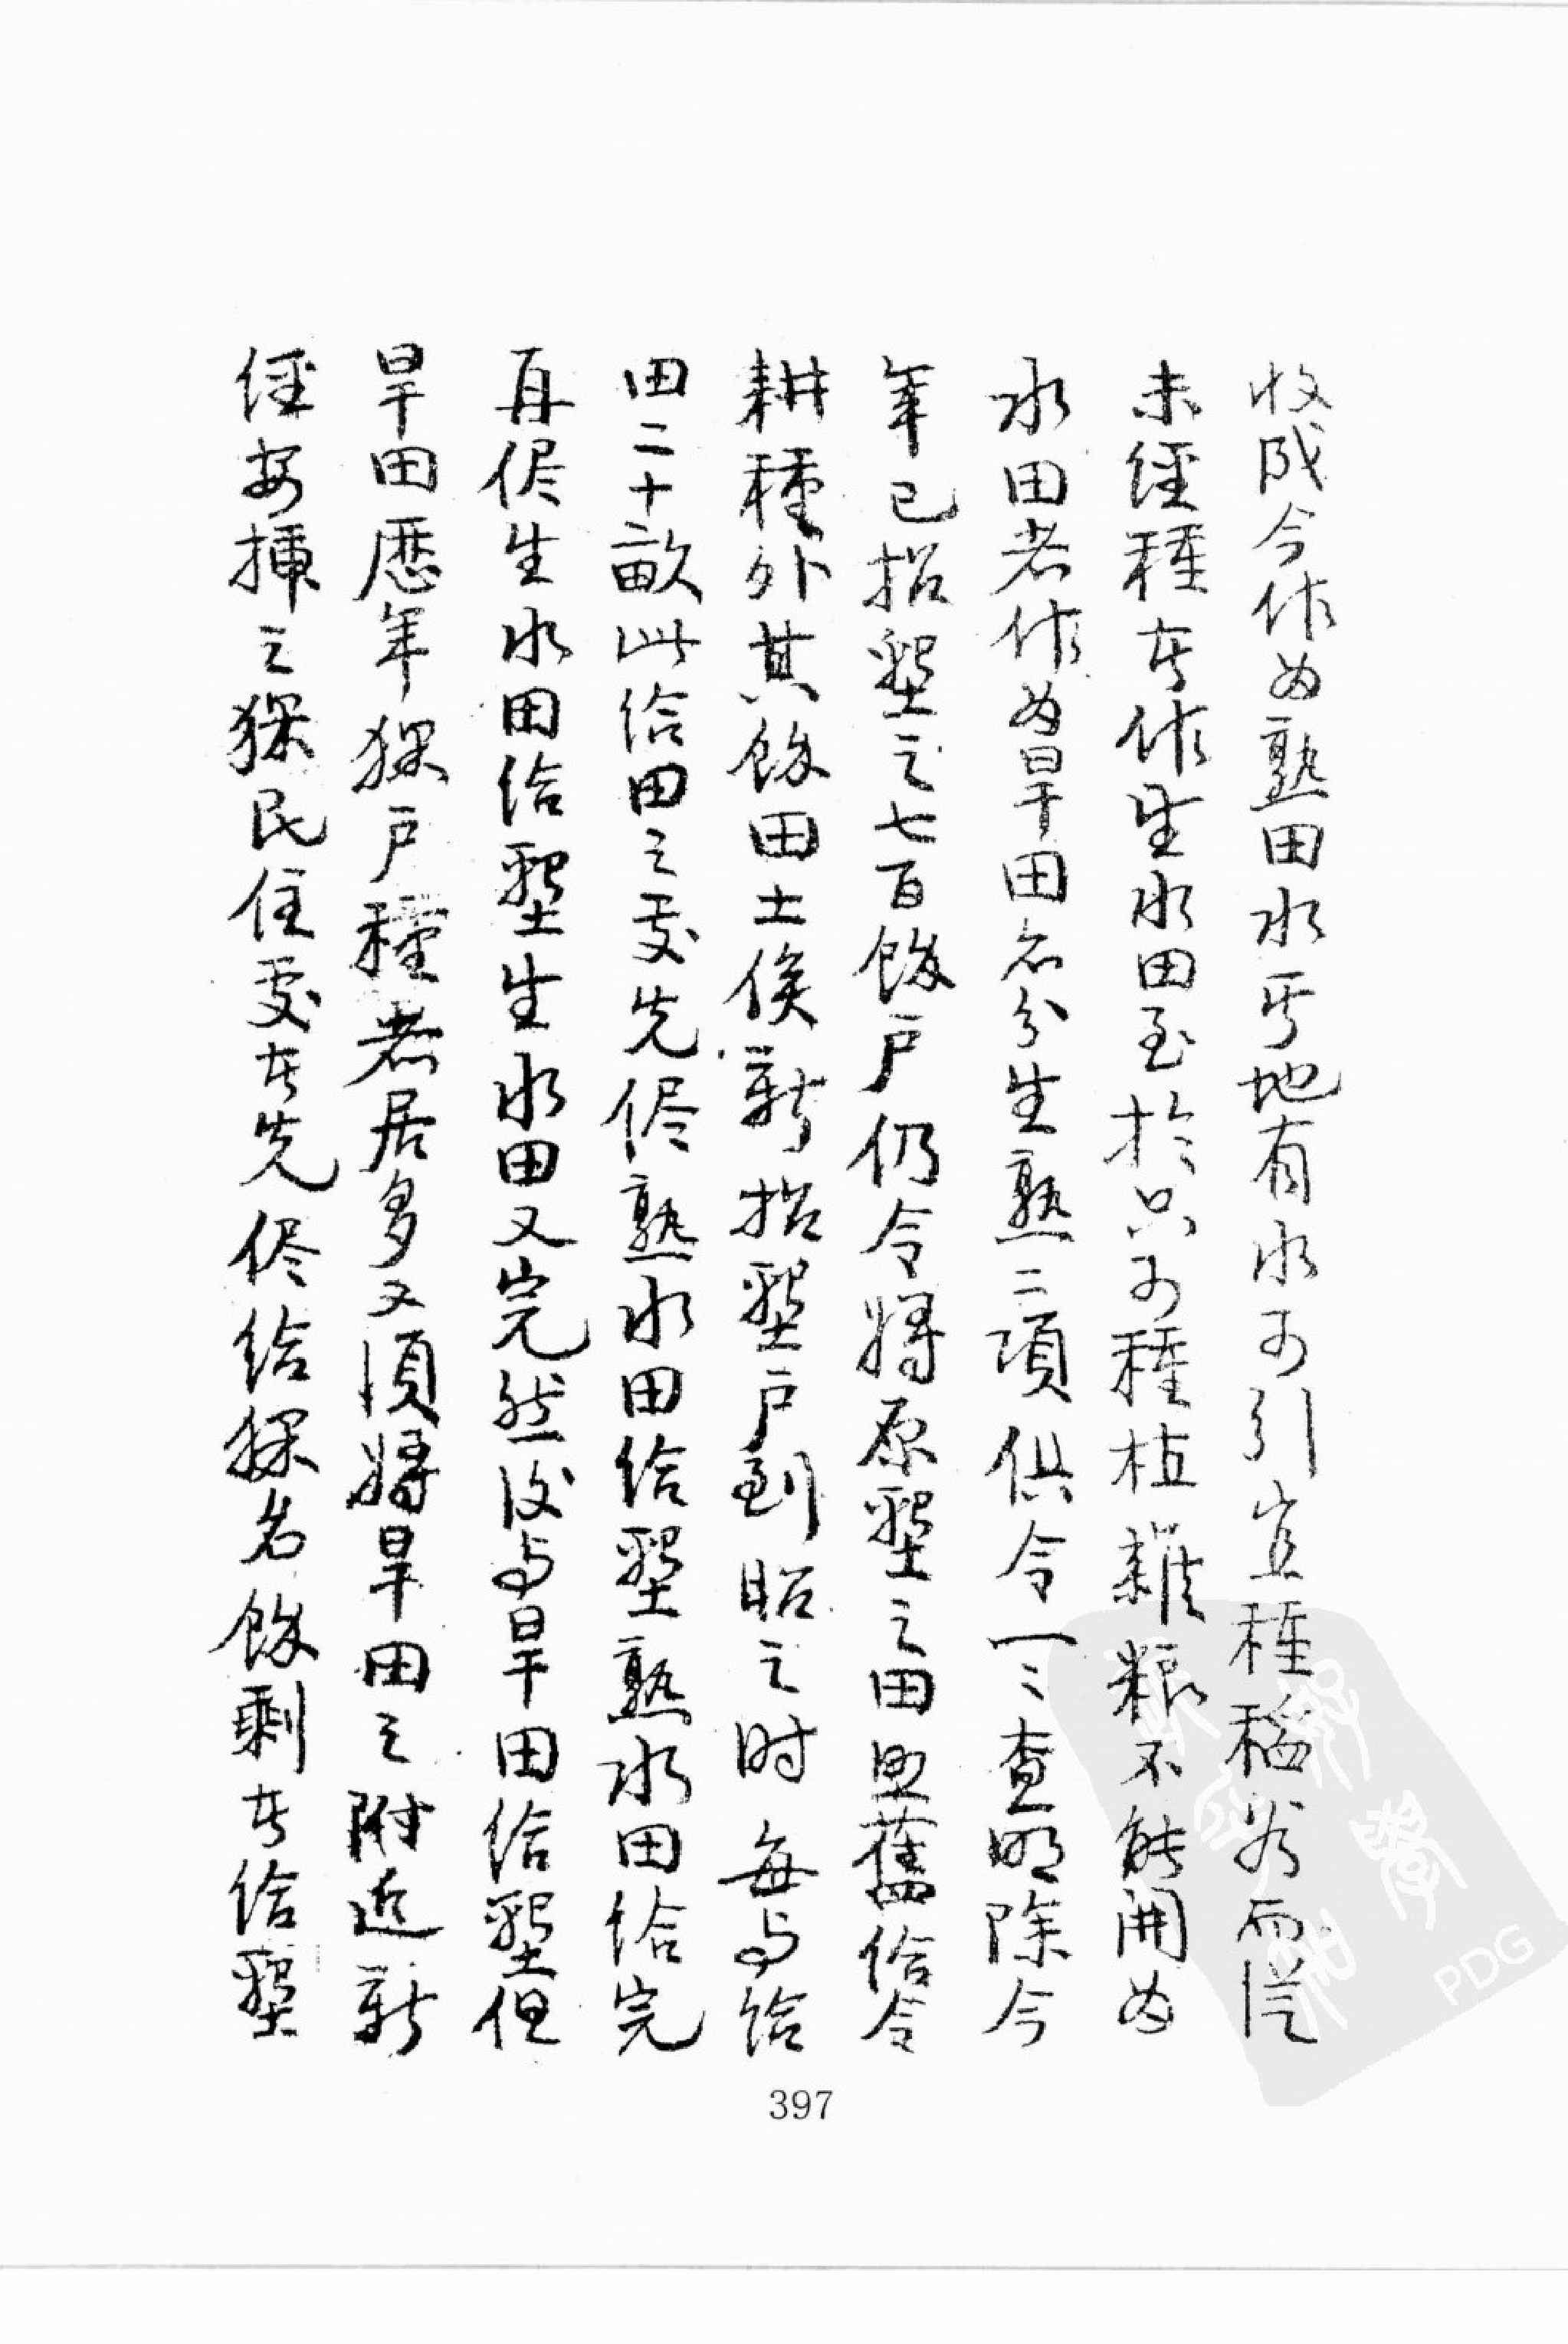 收成今作为熟田水其地有水可引宜種稻谷而從
未經種者作生水田至於只可種植雜粮不能開为
水田者作为旱田名分生熟二項俱令一一查明除今
年已招墾之七百餘户仍令將原墾之田照舊給令
耕種外其餘田土俟新招墾户到昭之时每与給
田二十畝此給田之处先侭熟水田給墾熟水田給完
再侭生水田給墾生水田又完然後与旱田給墾但
旱田歷年猓户種者居多又須將旱田之附近新
經安插之猓民住处者先侭給猓名餘剩者給墾
397
PDG